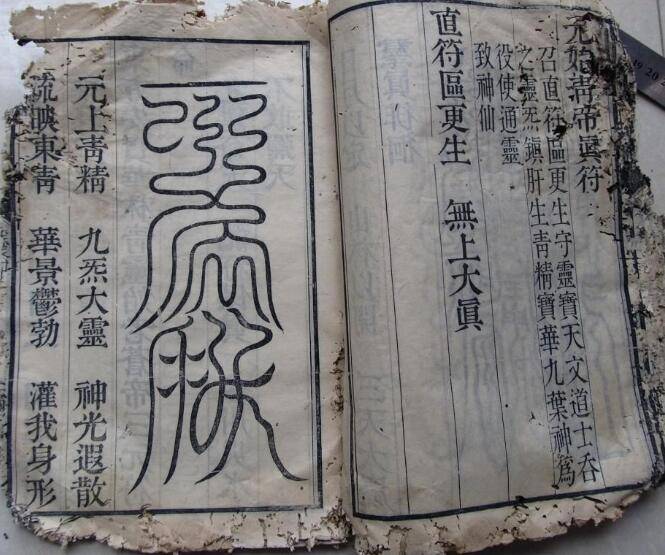 元始靑帝眞符
召直符區更生守靈寶天文道士吞
之靈炁鎮肝生靑精寶華九葉神爲
役使通靈
致神仙
直符區更生 無上大眞
元上靑精 九炁大靈 神光遐散
流映東靑 華景鬱勃 灌我身形